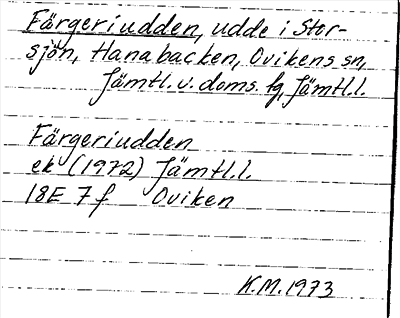 Färgeriudden, udde i Stor-
sjön, Hanabacken, Ovikens sn,
Jämtl. v. doms. fg, Jämtl.l.
Färgeriudden
ek (1972) Jämtl.l.
18E 7f Oviken
K.M. 1973